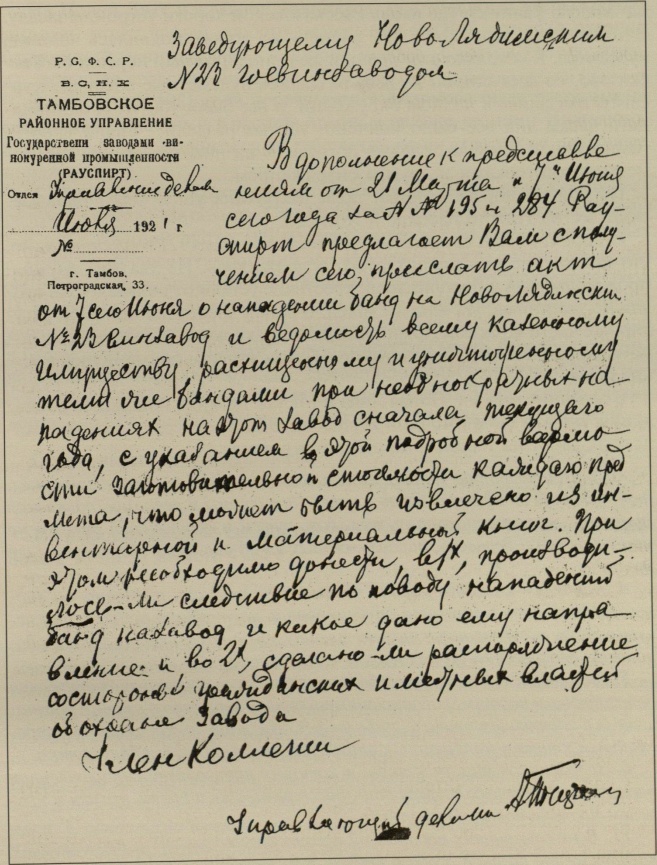 Заведующему НовоЛядинским
№23 госвинзаводом
Р. С. Ф. С. Р.
В. С. Н. Х
ТАМБОВСКОЕ
РАЙОННОЕ УПРАВЛЕНИЕ
Государствени заводами ви-
нокуренной промышленности
(РАУСПИРТ)
Отдел Управление делам
Июня 1921 г
№
г. Тамбов.
Петроградская, 33.
В дополнение к представле
ниям от 21 Марта и 7го Июня
сего года за №№ 195 и 284 Рау-
спирт предлагает Вам с полу-
чением сего, прислать акт
от 7 сего Июня о нападении банд на НовоЛядинский
№23 Винзавод и ведомость всему казенному
имуществу расхищенному и уничтоженному
теми же бандами при неоднократных на-
падениях на этот завод сначала текущего
года, с указанием в этой подробной ведомо
сти заготовительной стоимости каждого пред
мета, что может быть извлечено из ин-
вентарной и материальной книг. При
этом необходимо донести, в 1х, производи-
лось-ли следствие по поводу нападений
банд на завод и какое дано ему напра
вление и, во 2х, сделано-ли распоряжение
со стороны гражданских и местных властей
об охране завода
Член Коллегии
Управляющий делами